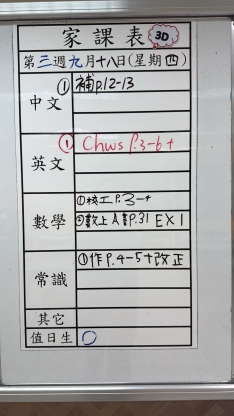 家課表 3D
第三週九月十八日(星期四)
中文 ①補p.12-13
英文 ① Chws P.3-6+
數學 ①校工P.3-4
②數上A書P.31 EX1
常識 ①作P.4-5+改正
其它
值日生